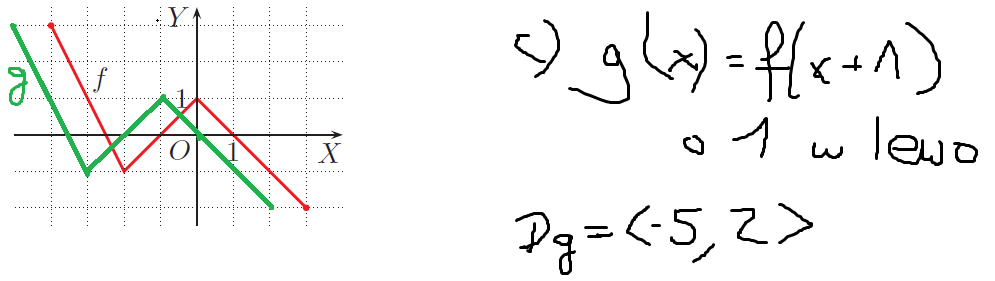 Y
g
f
1
O
1
X
c) g(x) = f(x+1)
o 1 w lewo
Dg = <-5, 2>